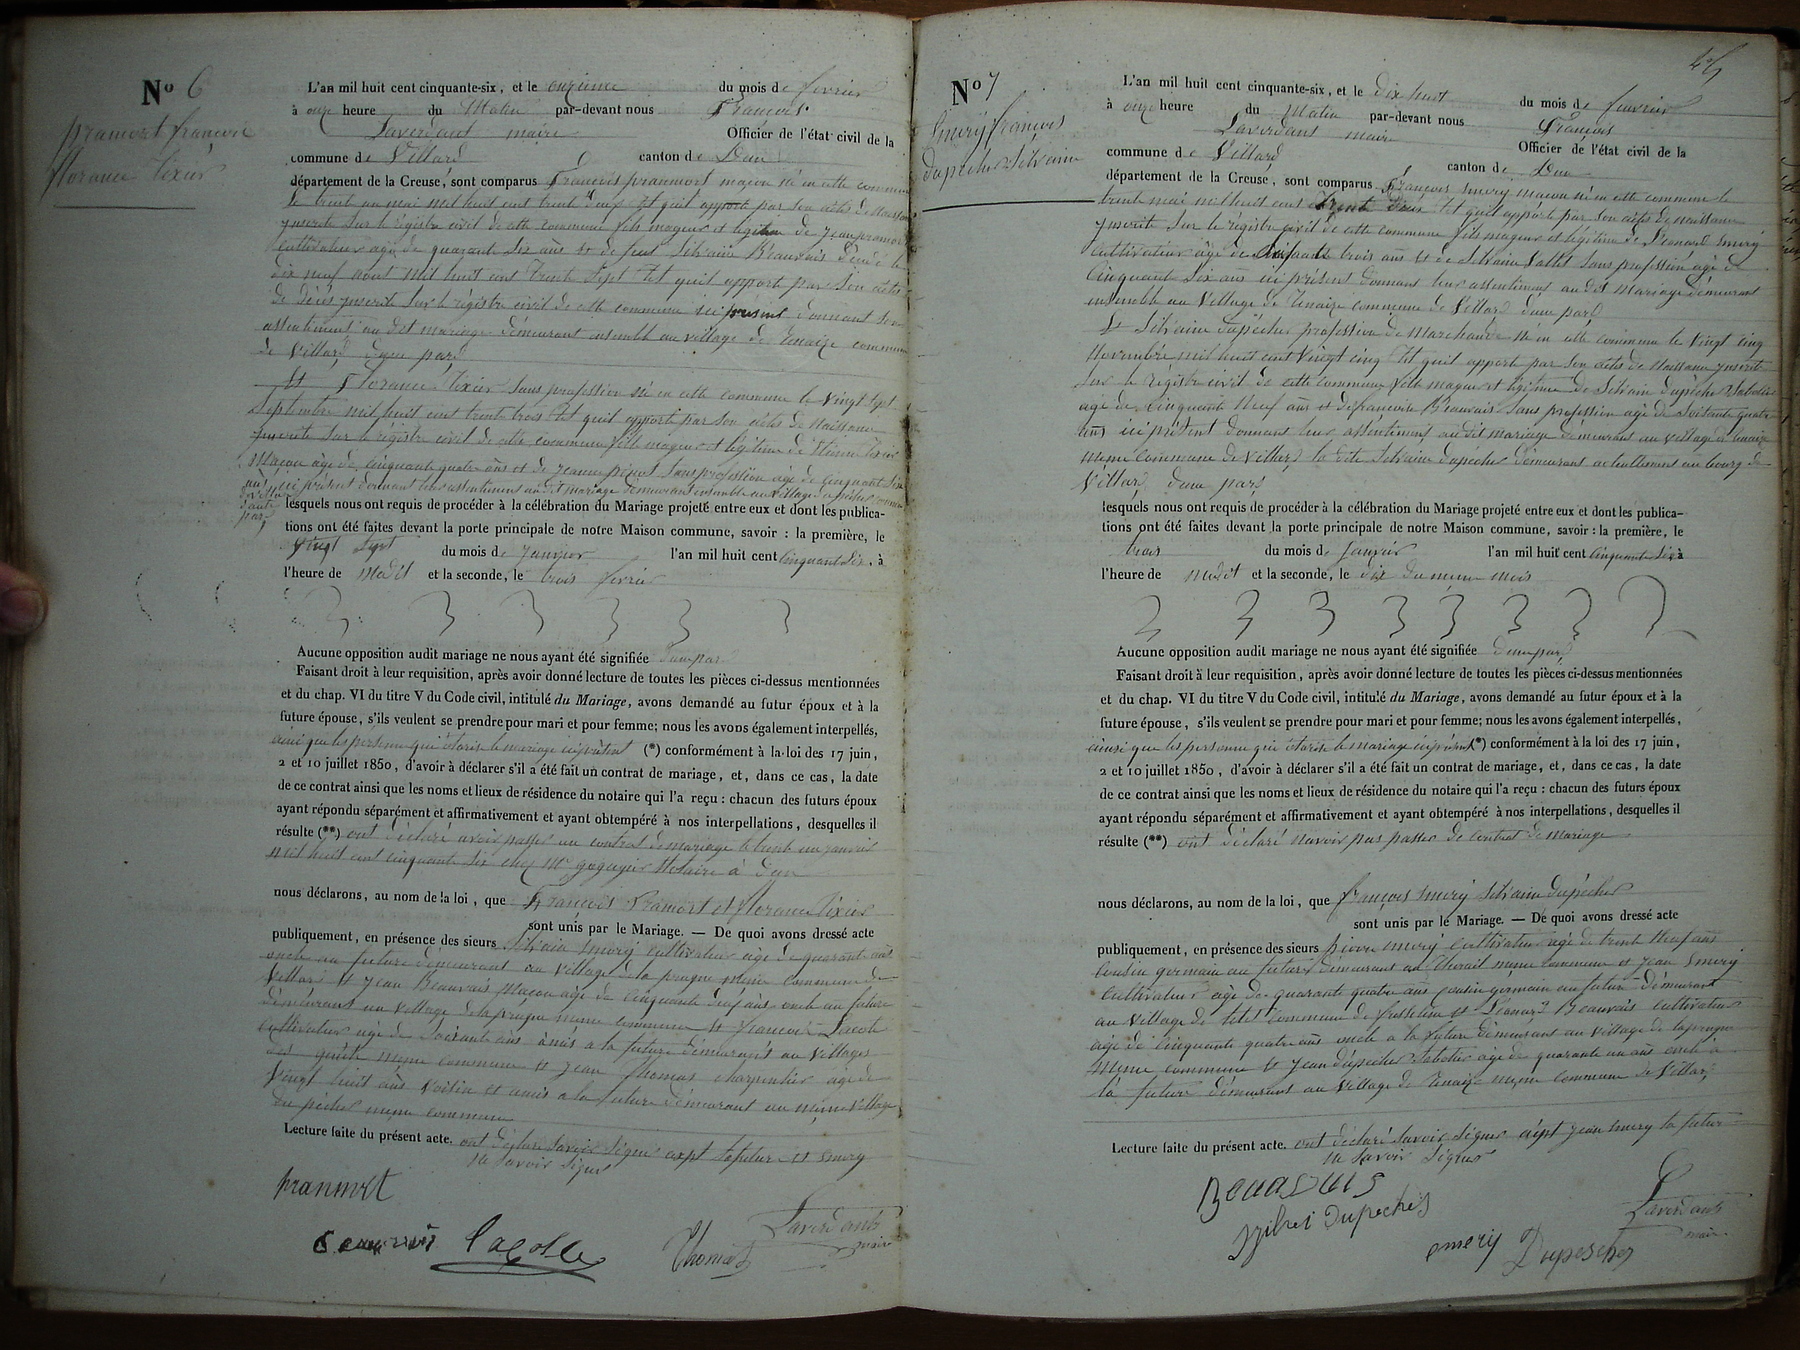 N° 6
pramort françois
florance tixier
L'an mil huit cent cinquante-six, et le onzieme du mois de fevrier
à onze heure du Matin par-devant nous François
Laverdant maire Officier de l'état civil de la
commune de Villard canton de Dun
département de la Creuse, sont comparus François pramort maçon né en cette commune
le trente un mai mil huit cent trente deux tel quil apporte par son actes de Naissance
ynscrite sur le régistre civil de cette commune fils mageur et légitime de jean pramort
Cultivateur agé de quarante six ans et de feue Silvaine Beauvais décédé le
dix neuf aout mil huit cent trente sept tel quil apporte par son actes
de décés ynscrite sur le régistre civil de cette commune ici present donnant son
assentiment au dit mariage démeurant ensemble au village de Tenaize commune
de Villard d'une pard
Et Florance tixier sans profession né en cette commune le vingt sept
Septembre mil huit cent trente trois tel quil apporte par son actes de Naissance
ynscrite sur le régistre civil de cette commune fille mageur et légitime de Etienne Tixier
Maçon âgé de cinquante quatre ans et de jeanne sans profession agé de cinquante six
ans ici présent donnant leur assentiment au dit mariage démeurant ensemble au village
lesquels nous ont requis de procéder à la célébration du Mariage projeté entre eux et dont les publica-
tions ont été faites devant la porte principale de notre Maison commune, savoir : la première, le
vingt sept du mois de janvier l'an mil huit cent cinquante six, à
l'heure de Medit et la seconde, le trois fevrier
Aucune opposition audit mariage ne nous ayant été signifiée d'une par
Faisant droit à leur requisition, après avoir donné lecture de toutes les pièces ci-dessus mentionnées
et du chap. VI du titre V du Code civil, intitulé du Mariage, avons demandé au futur époux et à la
future épouse, s'ils veulent se prendre pour mari et pour femme; nous les avons également interpellés,
ainsi que les personne qui otorise le mariage ici présent (*) conformément à la loi des 17 juin,
2 et 10 juillet 1850, d'avoir à déclarer s'il a été fait un contrat de mariage, et, dans ce cas, la date
de ce contrat ainsi que les noms et lieux de résidence du notaire qui l'a reçu : chacun des futurs époux
ayant répondu séparément et affirmativement et ayant obtempéré à nos interpellations, desquelles il
résulte (**) ont déclaré avoir passer un contrat de mariage le trente un janvier
mil huit cent cinquante six chez Me Notaire à dun
nous déclarons, au nom de la loi, que François Pramort et florance tixier
sont unis par le Mariage. — De quoi avons dressé acte
publiquement, en présence des sieurs Silvain Emery cultivateur agé de quarante ans
oncle au future démeurant au village de la prugne même commune de
Villard et jean Beauvais Maçon agé de cinquante ans oncle au future
démeurant au village de la prugne même commune et françois Lacote
Cultivateur agé de soixante ans amis a la future démeurant au village
même commune et jean thomas charpentier agé de
vingt huit ans voisin et amis a la future démeurant au même village
du péchet même commune
Lecture faite du présent acte. ont déclaré savoir signer exept le futur et Emery
ne savoir signer
pramort
Beauvais Lacotte Thomas Laverdant
maire
N° 7
Emery françois
Dupéchez Silvaine
L'an mil huit cent cinquante-six, et le dix huit du mois de fevrier
à onze heure du Matin par-devant nous François
Laverdant maire Officier de l'état civil de la
commune de Villard canton de Dun
département de la Creuse, sont comparus François Emery maçon né en cette commune le
trente mai mil huit cent trente deux tel quil apporte par son actes de naissance
ynscrite sur le régistre civil de cette commune fils mageur et légitime de Léonard Emery
Cultivateur agé de trois ans et de Silvaine Vallet sans profession agé de
Cinquante six ans ici présent donnant leur assentiment au dit mariage démeurant
ensemble au village de Tenaize commune de Villard d'une pard
Et Silvaine dupéchez profession de Marchande né en cette commune le vingt cinq
Novembre mil huit cent vingt cinq tel quil apporte par son actes de Naissance ynscrite
sur le régistre civil de cette commune fille mageur et légitime de Silvain dupéchez Sabotier
agé de cinquante neuf ans et de françoise Beauvais sans profession agé de soixante quatre
ans ici présent donnant leur assentiment au dit mariage démeurant au village de Tenaize
même commune de Villard la dite Silvaine dupéchez démeurant actuellement au bourg de
Villard d'une pard
lesquels nous ont requis de procéder à la célébration du Mariage projeté entre eux et dont les publica-
tions ont été faites devant la porte principale de notre Maison commune, savoir : la première, le
trois du mois de janvier l'an mil huit cent cinquante six à
l'heure de medit et la seconde, le dix du même mois
Aucune opposition audit mariage ne nous ayant été signifiée d'une pard
Faisant droit à leur requisition, après avoir donné lecture de toutes les pièces ci-dessus mentionnées
et du chap. VI du titre V du Code civil, intitulé du Mariage, avons demandé au futur époux et à la
future épouse, s'ils veulent se prendre pour mari et pour femme; nous les avons également interpellés,
ainsi que les personne qui otorise le mariage ici présent (*) conformément à la loi des 17 juin,
2 et 10 juillet 1850, d'avoir à déclarer s'il a été fait un contrat de mariage, et, dans ce cas, la date
de ce contrat ainsi que les noms et lieux de résidence du notaire qui l'a reçu : chacun des futurs époux
ayant répondu séparément et affirmativement et ayant obtempéré à nos interpellations, desquelles il
résulte (**) ont déclaré navoir pas passer de contrat de mariage
nous déclarons, au nom de la loi, que françois Emery Silvaine Dupéchez
sont unis par le Mariage. — De quoi avons dressé acte
publiquement, en présence des sieurs pierre Emery Cultivateur agé de trente neuf ans
Cousin germain au future démeurant au même commune et jean Emery
Cultivateur agé de quarante quatre ans cousin germain au future démeurant
au village de commune de et Léonard Beauvais Cultivateur
agé de cinquante quatre ans oncle a la future démeurant au village de la prugne
même commune et jean dupéchez Sabotier agé de quarante un ans oncle a
la future démeurant au village de Tenaize même commune de Villard
Lecture faite du présent acte. ont déclaré savoir signer exept jean Emery la future
ne savoir signer
Beauvais
Dupeches
emery Dupeschez
Laverdant
maire